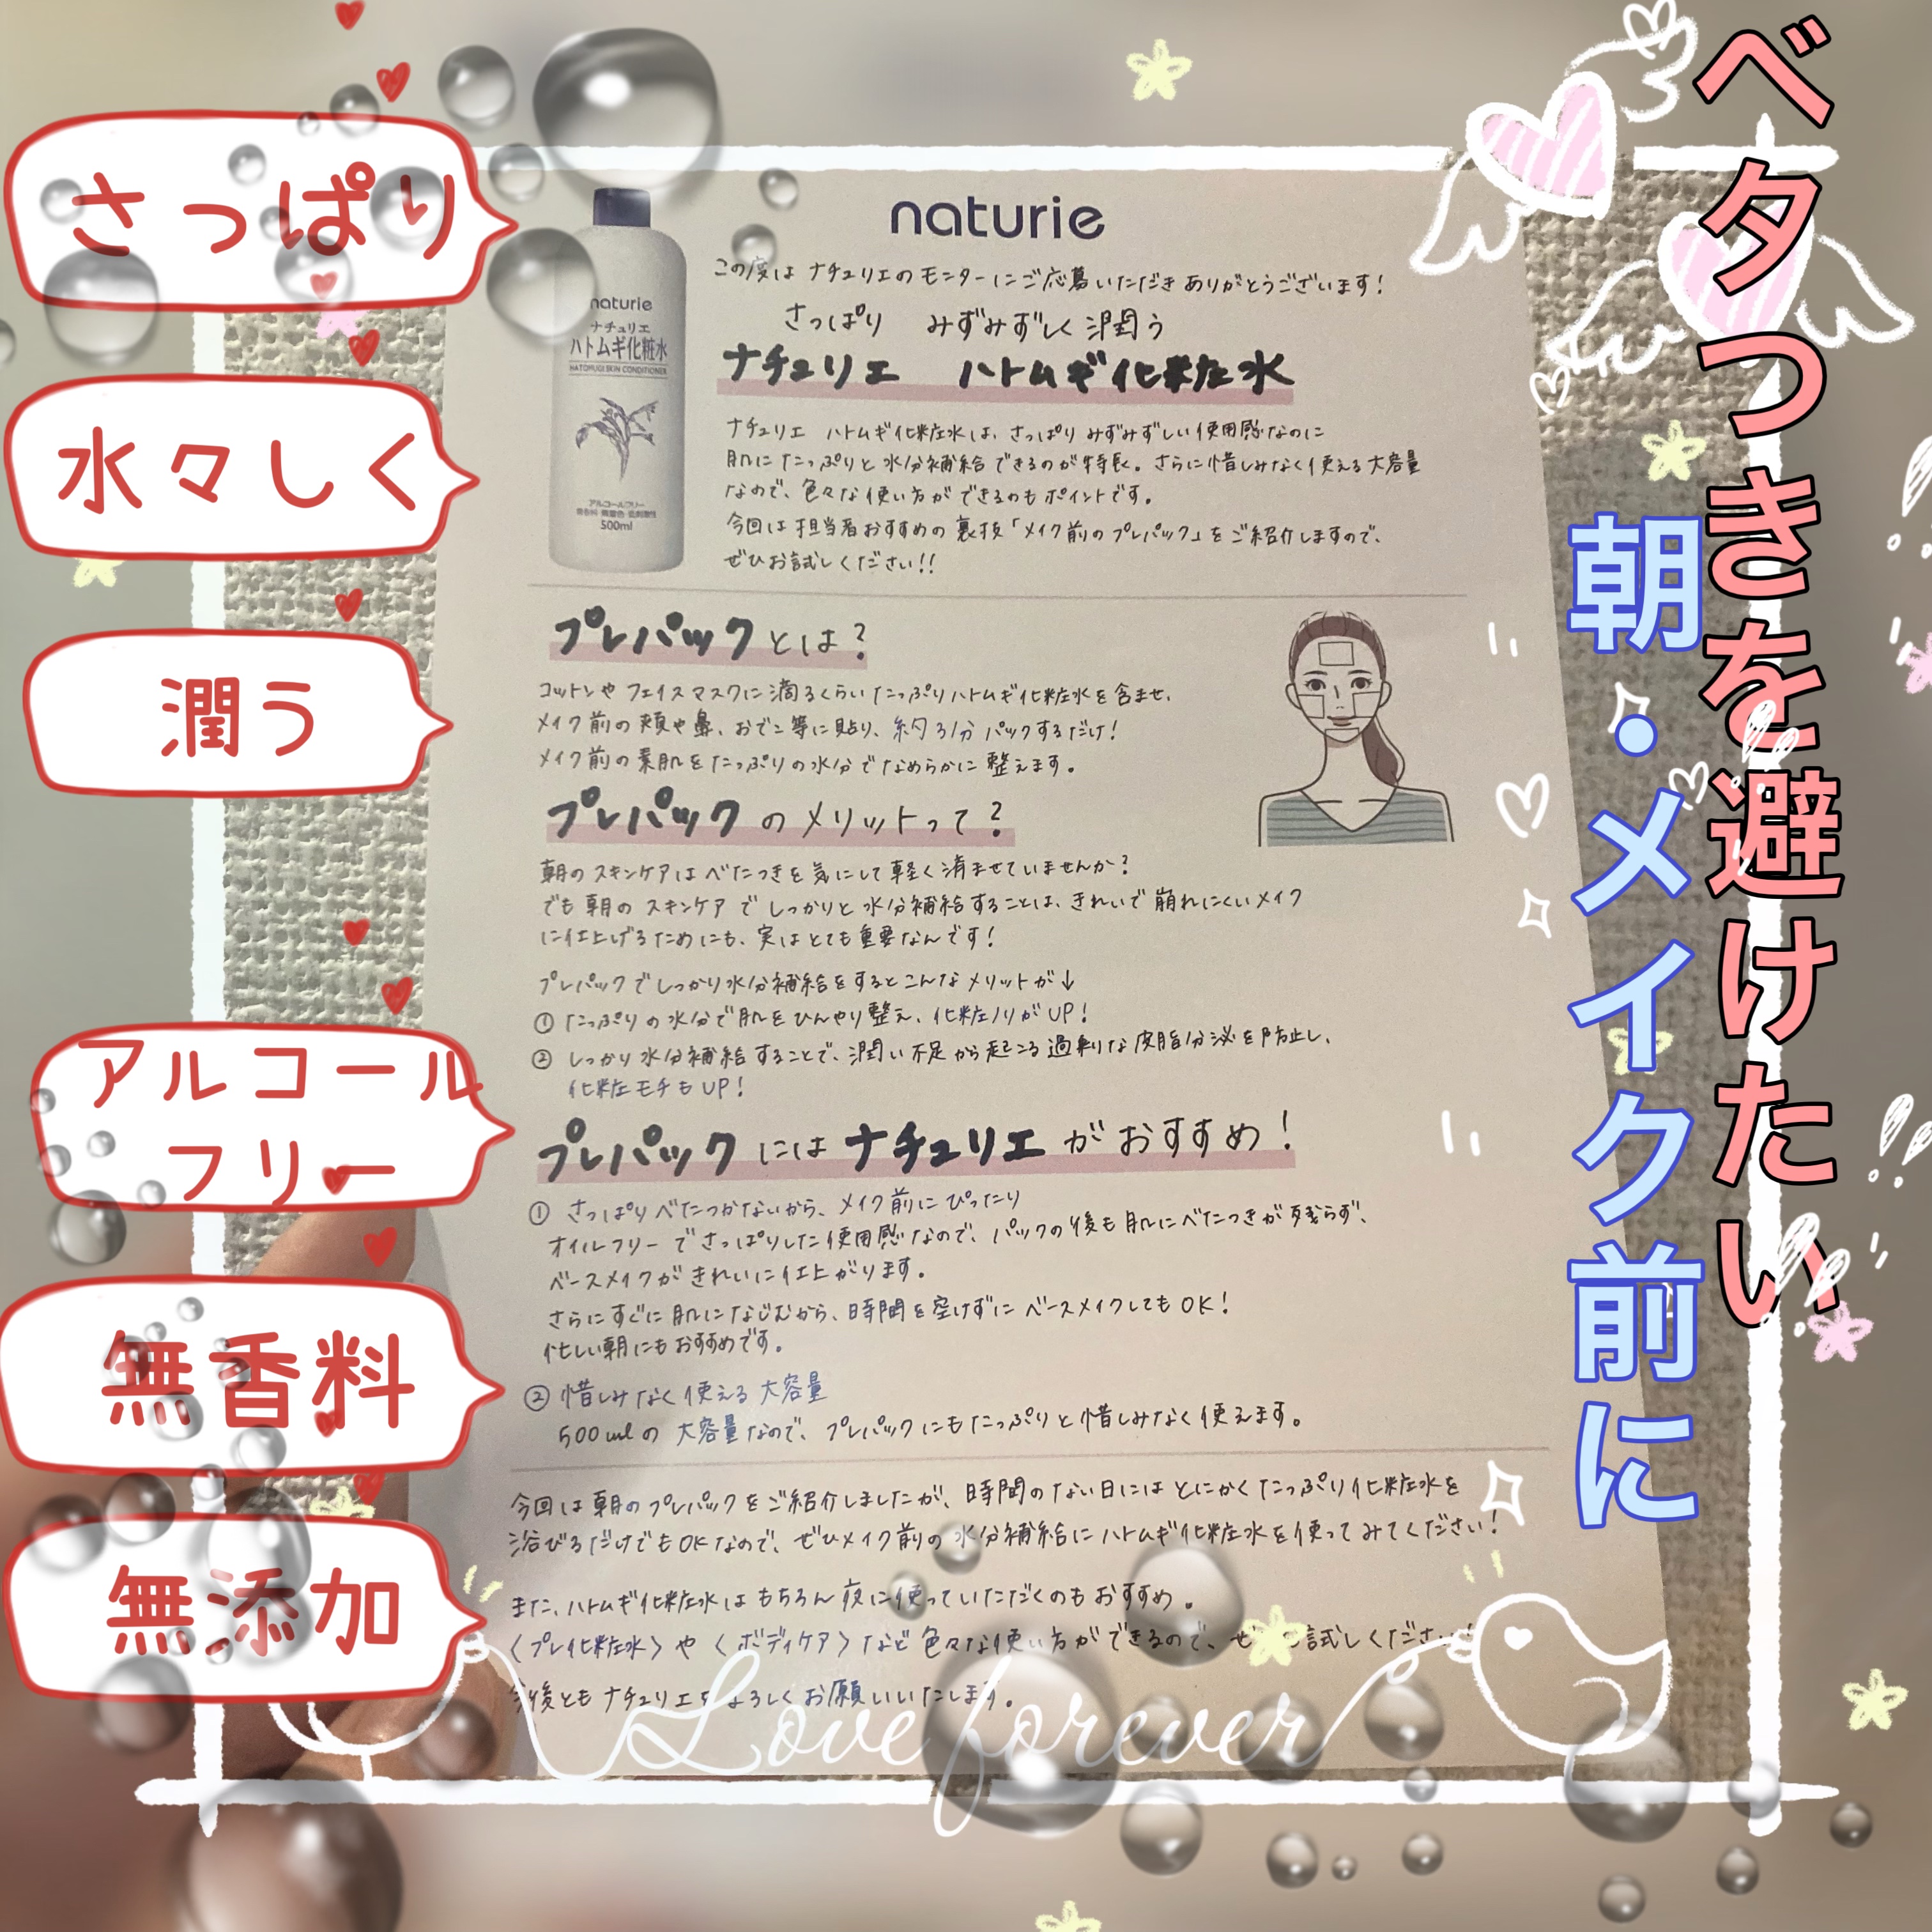 ベタつきを避けたい
朝・メイク前に
さっぱり
水々しく
潤う
アルコール
フリー
無香料
無添加
naturie
ナチュリエ
ハトムギ化粧水
HATOMUGI SKIN CONDITIONER
アルコールフリー
500ml
naturie
この度は ナチュリエのモニターにご応募いただき ありがとうございます!
さっぱり みずみずしく潤う
ナチュリエ ハトムギ化粧水
ナチュリエ ハトムギ化粧水は、さっぱり みずみずしい使用感なのに
肌にたっぷりと水分補給できるのが特長。さらに惜しみなく使える大容量
なので、色々な使い方ができるのもポイントです。
今回は担当者おすすめの裏技「メイク前のプレパック」をご紹介しますので、
ぜひお試しください!!
プレパックとは?
コットンやフェイスマスクに滴るくらいたっぷりハトムギ化粧水を含ませ、
メイク前の頬や鼻、おでこ等に貼り、約3分パックするだけ!
メイク前の素肌をたっぷりの水分でなめらかに整えます。
プレパックのメリットって?
朝のスキンケアはべたつきを気にして軽く済ませていませんか?
でも朝のスキンケアでしっかりと水分補給することは、きれいで崩れにくいメイク
に仕上げるためにも、実はとても重要なんです!
プレパックでしっかり水分補給をするとこんなメリットが↓
① たっぷりの水分で肌をひんやり整え、化粧ノリがUP!
② しっかり水分補給することで、潤い不足から起こる過剰な皮脂分泌を防止し、
化粧モチもUP!
プレパックにはナチュリエがおすすめ!
① さっぱりべたつかないから、メイク前にぴったり
オイルフリーでさっぱりした使用感なので、パックの後も肌にべたつきが残らず、
ベースメイクがきれいに仕上がります。
さらにすぐに肌になじむから、時間を空けずにベースメイクしてもOK!
忙しい朝にもおすすめです。
② 惜しみなく使える大容量
500mlの大容量なので、プレパックにもたっぷりと惜しみなく使えます。
今回は朝のプレパックをご紹介しましたが、時間のない日にはとにかくたっぷり化粧水を
浴びるだけでもOKなので、ぜひメイク前の水分補給にハトムギ化粧水を使ってみてください!
また、ハトムギ化粧水はもちろん夜に使っていただくのもおすすめ。
〈プレ化粧水〉や〈ボディケア〉など色々な使い方ができるので、ぜ 試しください!
今後ともナチュリエをよろしくお願いいたします。
Love forever